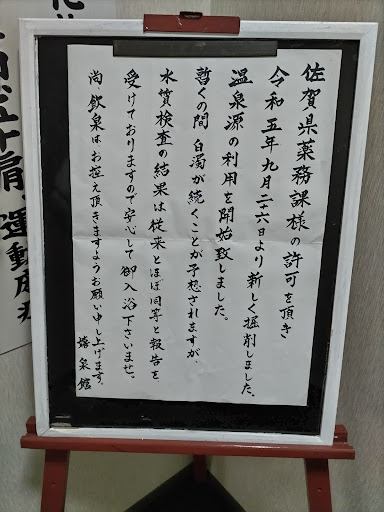 佐賀県薬務課様の許可を頂き
令和五年九月二十六日より新しく掘削しました、
温泉源の利用を開始致しました。
暫くの間 白濁が続くことが予想されますが
水質検査の結果は従来とほぼ同等と報告を
受けておりますので安心して御入浴下さいませ。
尚 飲泉はお控え頂きますようお願い申し上げます。
嬉泉館
五十肩 運動麻